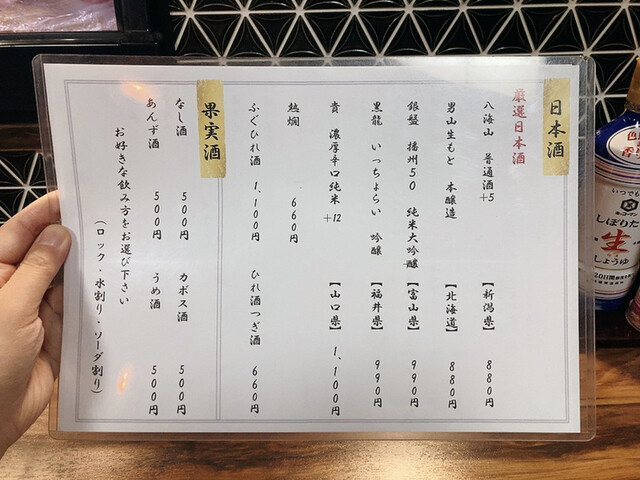 日本酒
厳選日本酒
八海山 普通酒+5 【新潟県】 880円
男山生もと 本醸造 【北海道】 880円
銀盤 播州50 純米大吟醸 【富山県】 990円
黒龍 いっちょらい 吟醸 【福井県】 990円
貴 濃厚辛口純米+12 【山口県】 1,100円
熱燗 660円
ふぐひれ酒 1,100円 ひれ酒つぎ酒 660円
果実酒
なし酒 500円 カボス酒 500円
あんず酒 500円 うめ酒 500円
お好きな飲み方をお選び下さい
(ロック・水割り・ソーダ割り)
いつでも
しぼりたて
生
しょうゆ